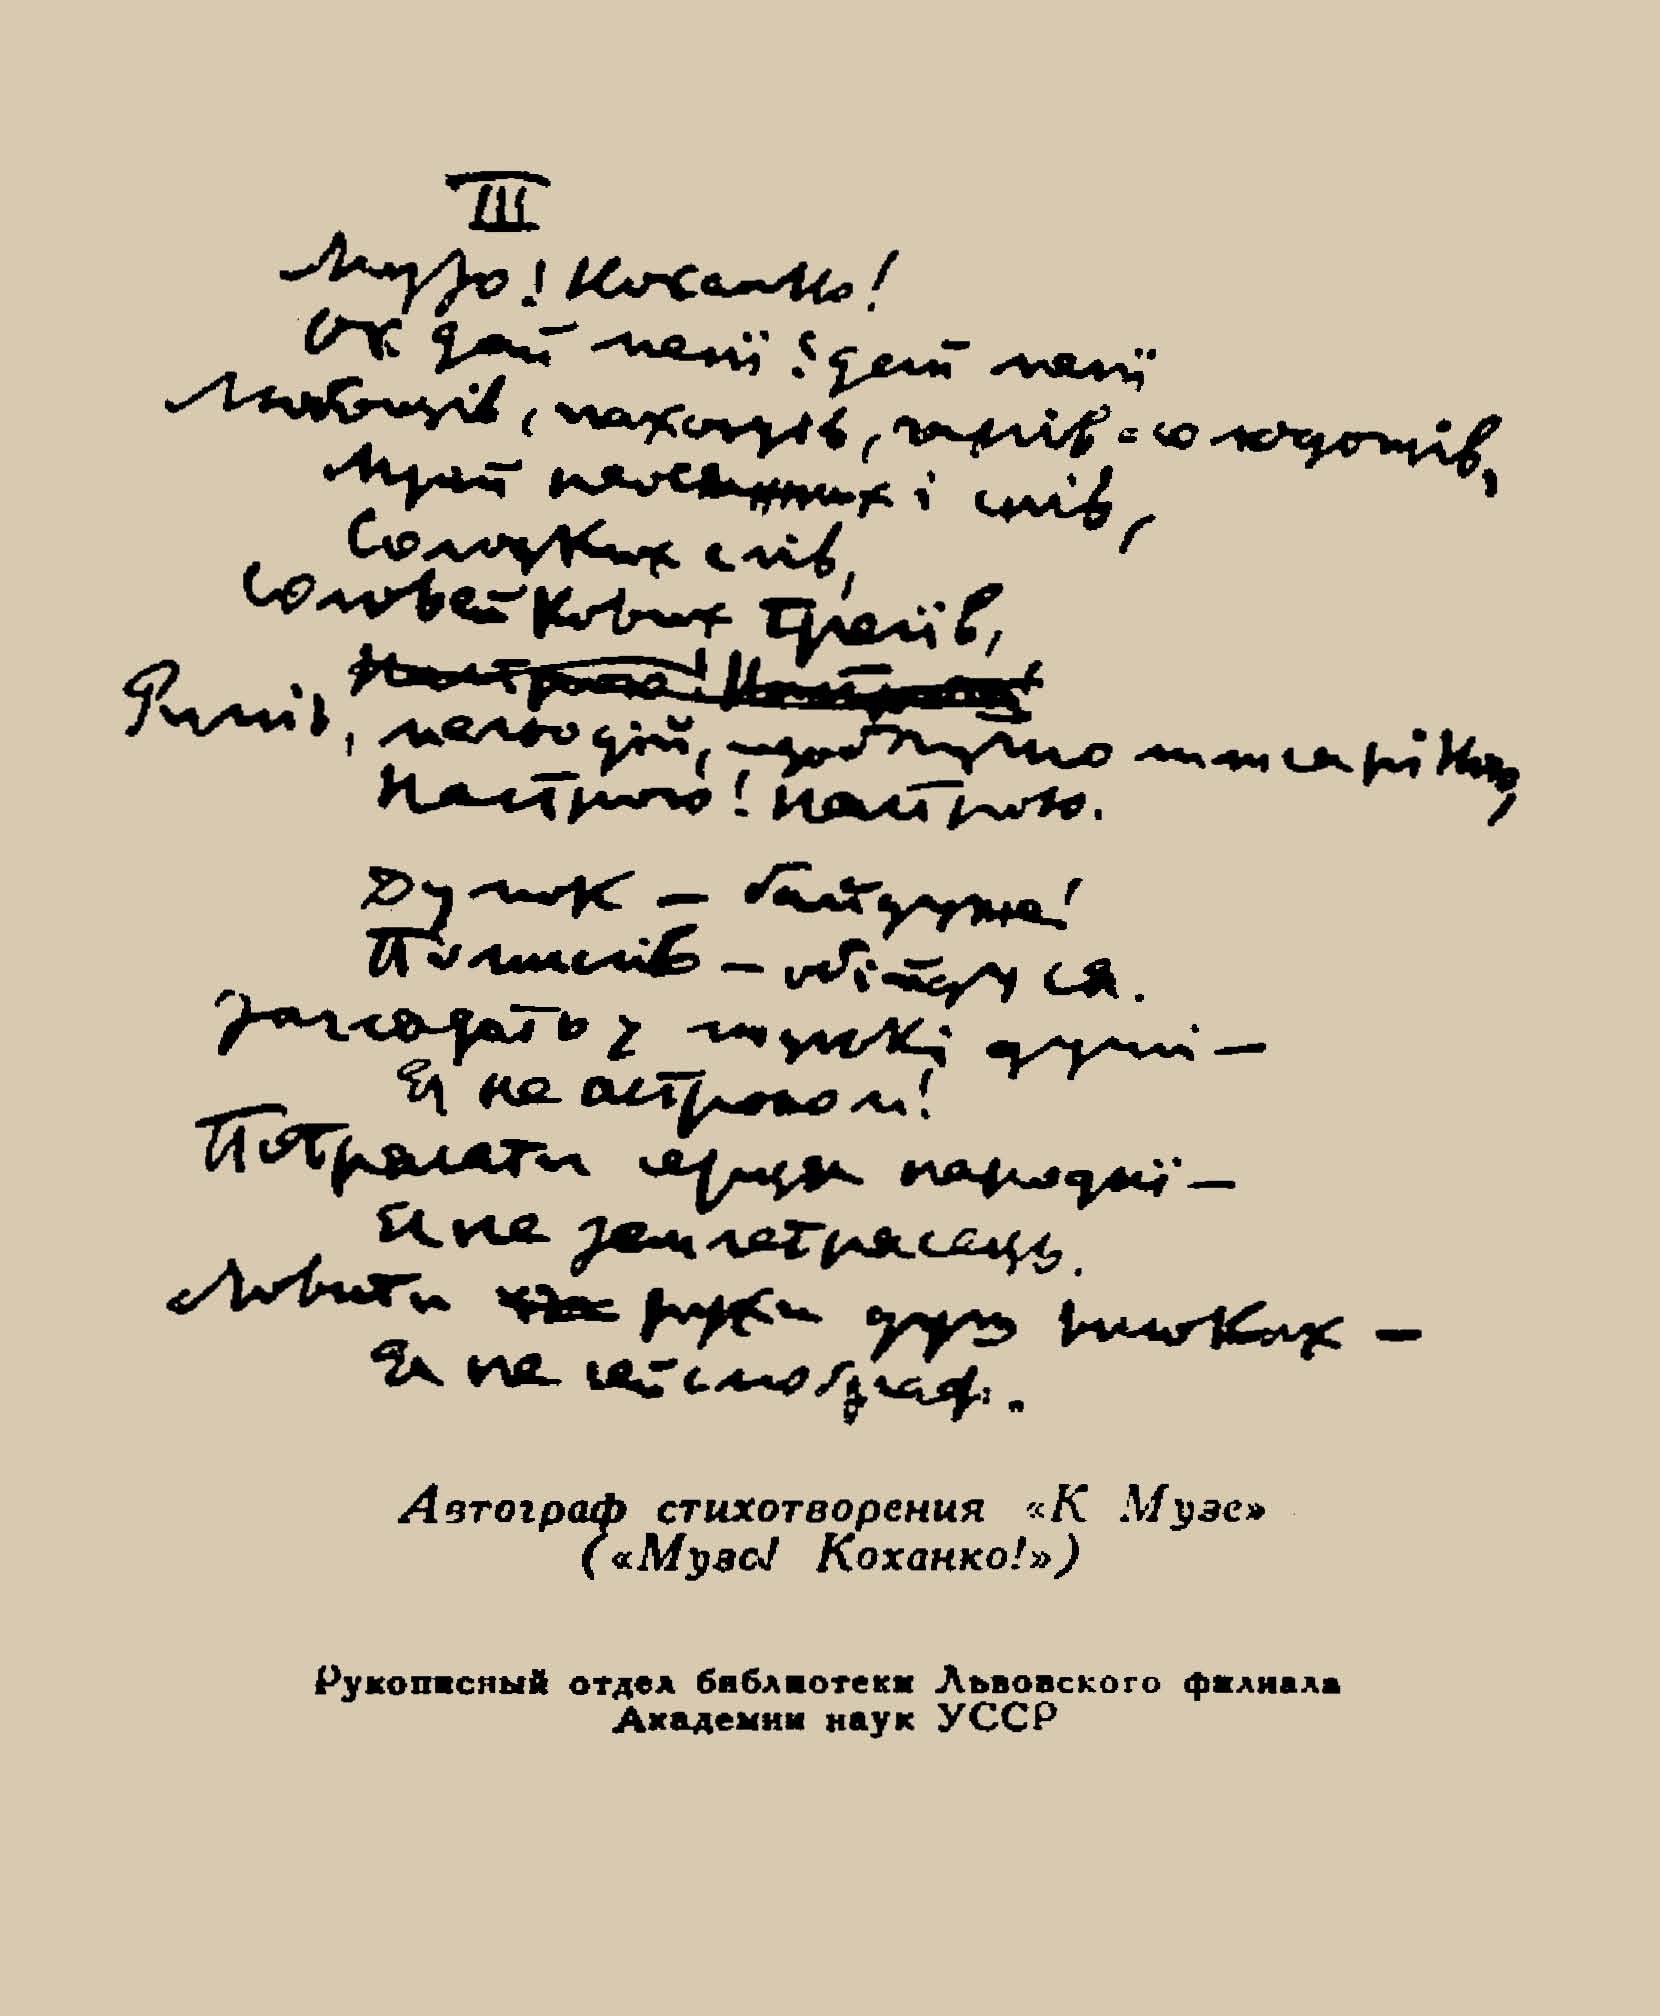 III
Музо! Коханко!
Ох дай мені! дай мені
Любощів, пахощів, чарів - солодощів,
Мрій неосяжних і снів,
Солодких слів,
Соловейкових трелів,
Настрою! Настрою!
Рим, мельодій, щоб пукло
Настрою! Настрою.
Думок — байдуже!
Помислів — обійдуся.
Заглядать у людскі душі —
Я не астроном!
Потрясати серця народнії —
Я не землетрясець.
Ловити рухи душ
Я не сейсмограф.
Автограф стихотворения «К Музе»
(«Музо! Коханко!»)
Рукописный отдел библиотеки Львовского филиала
Академии наук УССР